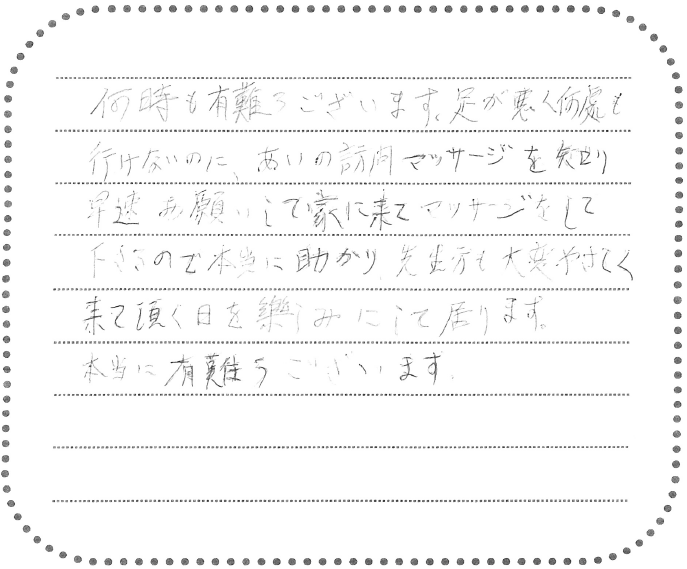 何時も有難うございます。足が悪く何處も
行けないのに、あいの訪問マッサージを知り
早速お願いして家に来てマッサージをして
下さるので本当に助かり、先生方も大変やさしく
来て頂く日を樂しみにして居ります。
本当に有難うございます。